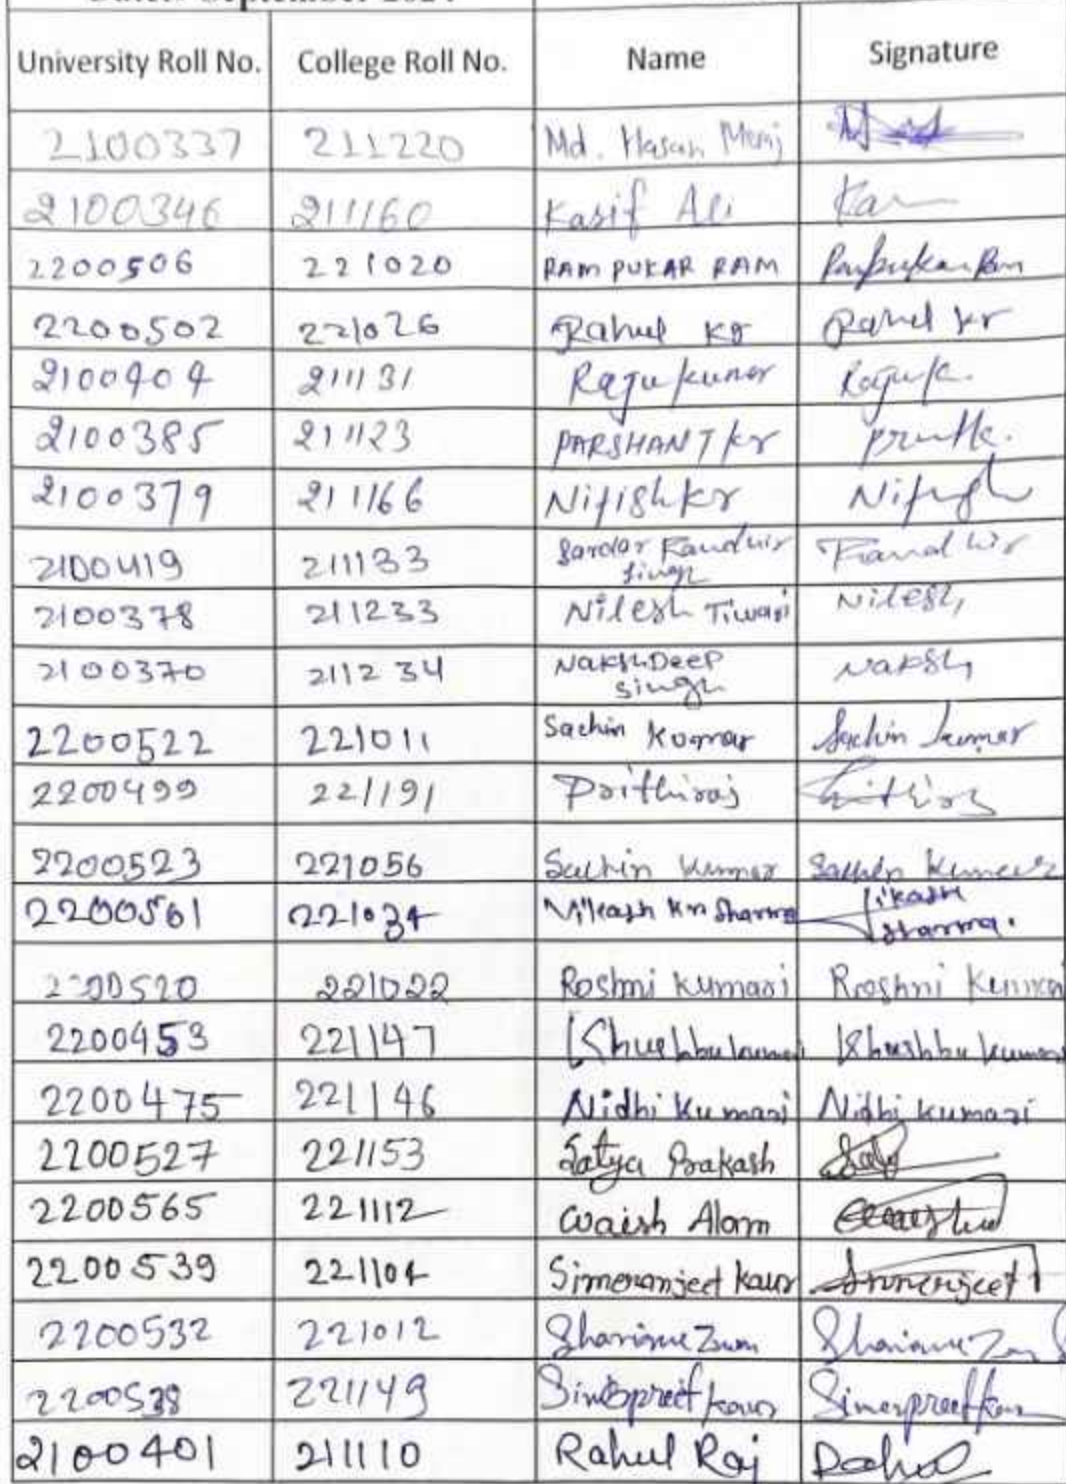 University Roll No. College Roll No. Name Signature
2100337 211220 Md. Hasan Meraj
2100346 211160 Kasif Ali
2200506 221020 RAM PUKAR RAM
2200502 221026 Rahul Kr Rahul Kr
2100404 211131 Raju Kumar
2100385 211123 PARSHANT Kr
2100379 211166 Nitish Kr Nitish
2100419 211133 Sardar Randhir Randhir
Singh
2100378 211233 Nilesh Tiwari Nilesh
2100370 211234 NAKSHDeeP Naksh
Singh
2200522 221011 Sachin Kumar Sachin Kumar
2200499 221191 Prithiraj
2200523 221056 Sachin Kumar Sachin Kumar
2200561 221034 Vikash Kr Sharma Vikash
Sharma.
2200520 221022 Roshni Kumari Roshni Kumari
2200453 221147 Khushbu Kumari Khushbu Kumari
2200475 221146 Nidhi Kumari Nidhi Kumari
2200527 221153 Satya Prakash
2200565 221112 Waish Alam
2200539 221104 Simeranjeet Kaur Simernjeet
2200532 221012 Sharique Zum
2200538 221149 Simerpreet Kaur Simerpreet Kaur
2100401 211110 Rahul Raj Rahul